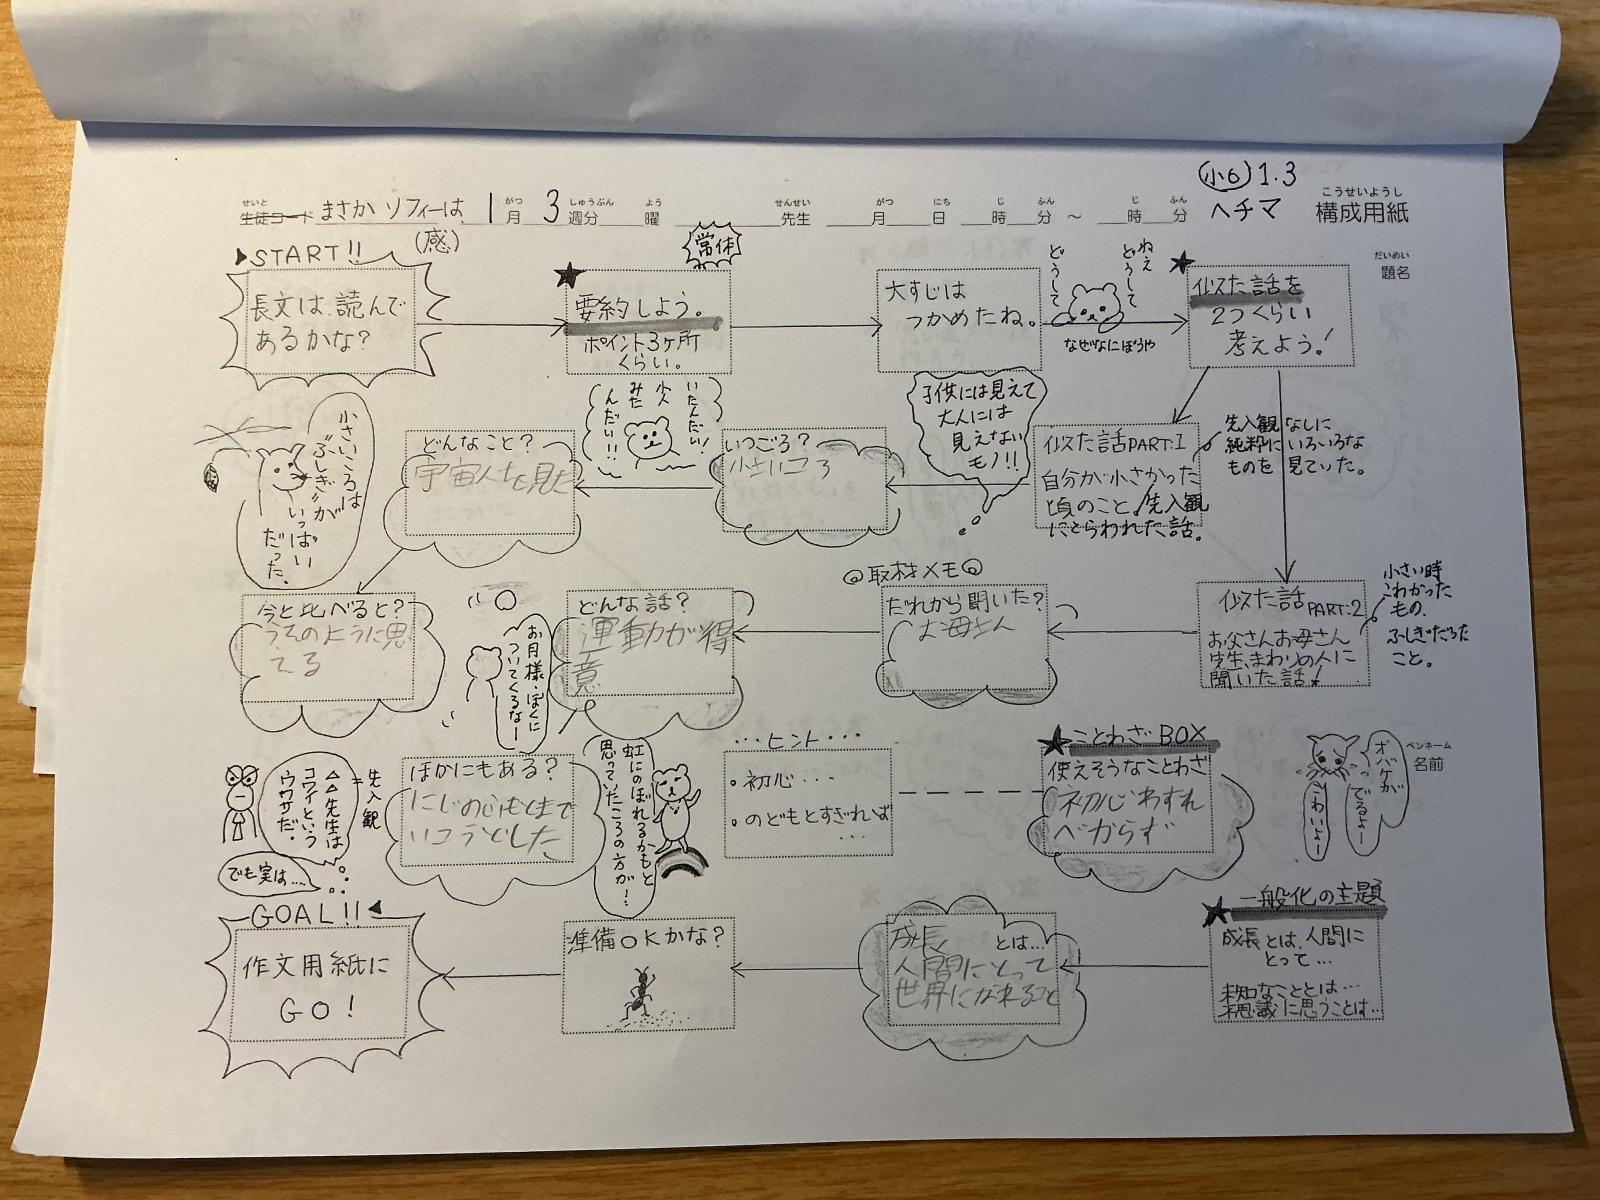 小6 1.3
こうせいようし
構成用紙
ヘチマ
せいと
生徒コード まさか ソフィーは、
がつ しゅうぶん よう
1月 3週分 曜
せんせい
先生
がつ にち じ ふん じ ふん
月 日 時 分 ~ 時 分
(感)
だいめい
題名
START!!
長文は、読んで
あるかな?
常体
★
要約しよう。
ポイント3ヶ所
くらい。
大すじは
つかめたね。
ねえ
どうして
どうして
なぜなにぼうや
★
似た話を
2つくらい
考えよう!
似た話PART:1
自分が小さかった
頃のこと。先入観
にとらわれた話。
先入観なしに
純粋にいろいろな
ものを見ていた。
子供には見えて
大人には
見えない
モノ!!
いつごろ?
小さいころ
いたんだい!
小人
みた
んだい!!
どんなこと?
宇宙人を見た
小さいころは
"ふしぎ"が
いっぱい
だった。
今と比べると?
うそのように思
てる
似た話PART:2
お父さんお母さん
先生、まわりの人に
聞いた話!
小さい時
こわかった
もの、
ふしぎだった
こと。
◎取材メモ◎
だれから聞いた?
お母さん
どんな話?
運動が得
意
お月様・ぼくに
ついてくるなー
ほかにもある?
虹にのぼれるかもと
思っていたころの方が…
先入観
=
△△先生は
コワイという
ウワサだ。
でも実は…
★ことわざBOX
使えそうなことわざ
初心わすれ
べからず
…ヒント…
・初心…
・のどもとすぎれば
…
ペンネーム
名前
オバケが
でるよー
こわいよー
★一般化の主題
成長とは、人間に
とって…
未知なこととは…
不思議に思うことは…
成長 とは…
人間にとって
世界になれること
準備OKかな?
GOAL!!
作文用紙に
GO!